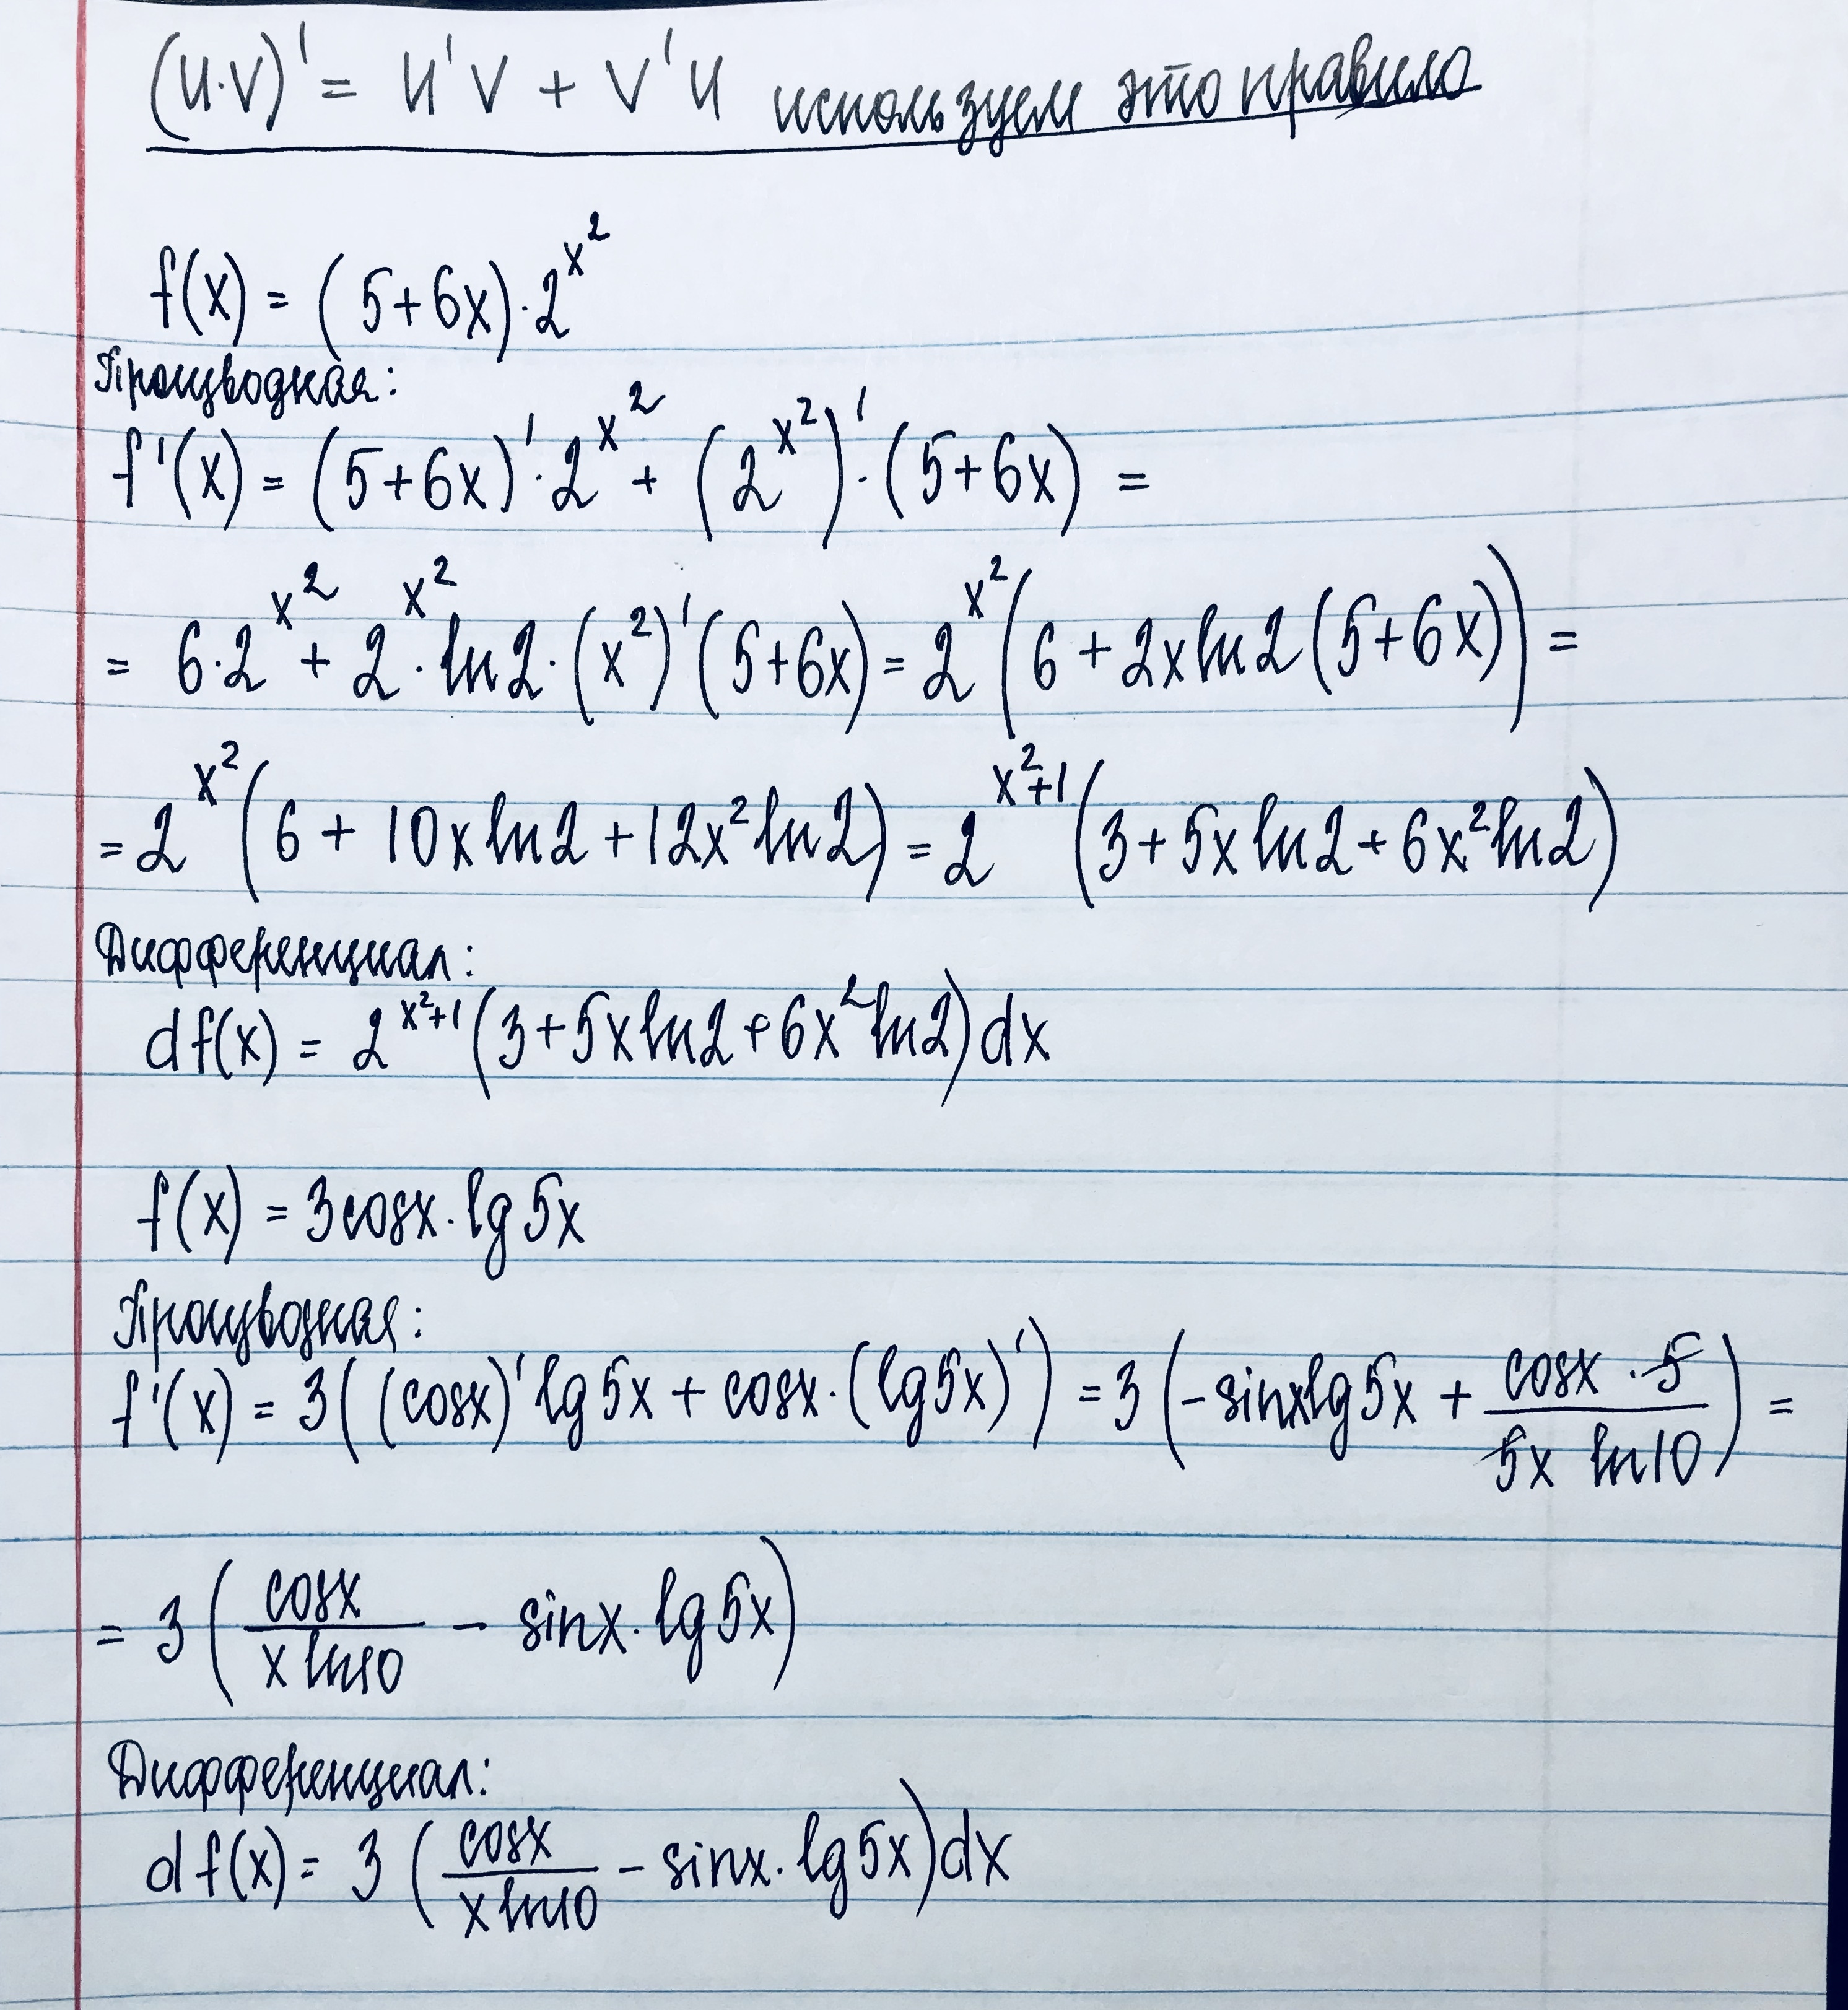 (u·v)' = u'v + v'u используем это правило
f(x) = (5+6x)·2^{x^2}
Производная:
f'(x) = (5+6x)'·2^{x^2} + (2^{x^2})'·(5+6x) =
= 6·2^{x^2} + 2^{x^2}·ln2·(x^2)'(5+6x) = 2^{x^2}(6 + 2x ln2(5+6x)) =
= 2^{x^2}(6 + 10x ln2 + 12x^2 ln2) = 2^{x^2+1}(3 + 5x ln2 + 6x^2 ln2)
Дифференциал:
df(x) = 2^{x^2+1}(3 + 5x ln2 + 6x^2 ln2)dx
f(x) = 3cosx·lg5x
Производная:
f'(x) = 3((cosx)'lg5x + cosx·(lg5x)') = 3(-sinxlg5x + \frac{cosx·5}{5x ln10}) =
= 3(\frac{cosx}{x ln10} - sinx·lg5x)
Дифференциал:
df(x) = 3(\frac{cosx}{x ln10} - sinx·lg5x)dx